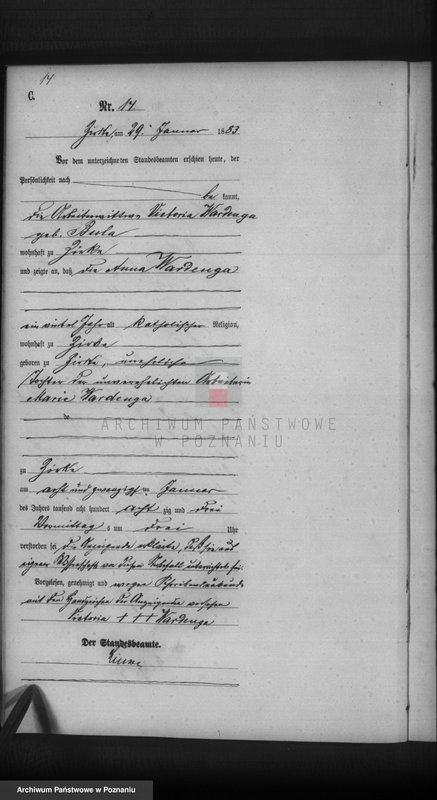 14
C.
Nr. 14
Zirke, am 29. Januar 1883
Vor dem unterzeichneten Standesbeamten erschien heute, der
Persönlichkeit nach
be kannt,
die Arbeiterwittwe Victoria Wardenga
geb. Besla
wohnhaft zu Zirke
und zeigte an, daß die Anna Wardenga
ein viertel Jahr alt katholischer Religion,
wohnhaft zu Zirke
geboren zu Zirke, uneheliche
Tochter der unverehelichten Arbeiterin
Marie Wardenga
ARCHIWUM PAŃSTWOWE
W POZNANIU
de
zu Zirke
am acht und zwanzigsten Januar
des Jahres tausend acht hundert acht zig und drei
Vormittags um drei Uhr
verstorben sei, die Anzeigende erklärte, daß sie aus
eigener Wissenschaft von diesem Sterbefall unterrichtet sei.
Vorgelesen, genehmigt und wegen Schreibensunkunde
mit den Handzeichen der Anzeigende versehen
Victoria + + + Wardenga
Der Standesbeamte.
Archiwum Państwowe w Poznaniu